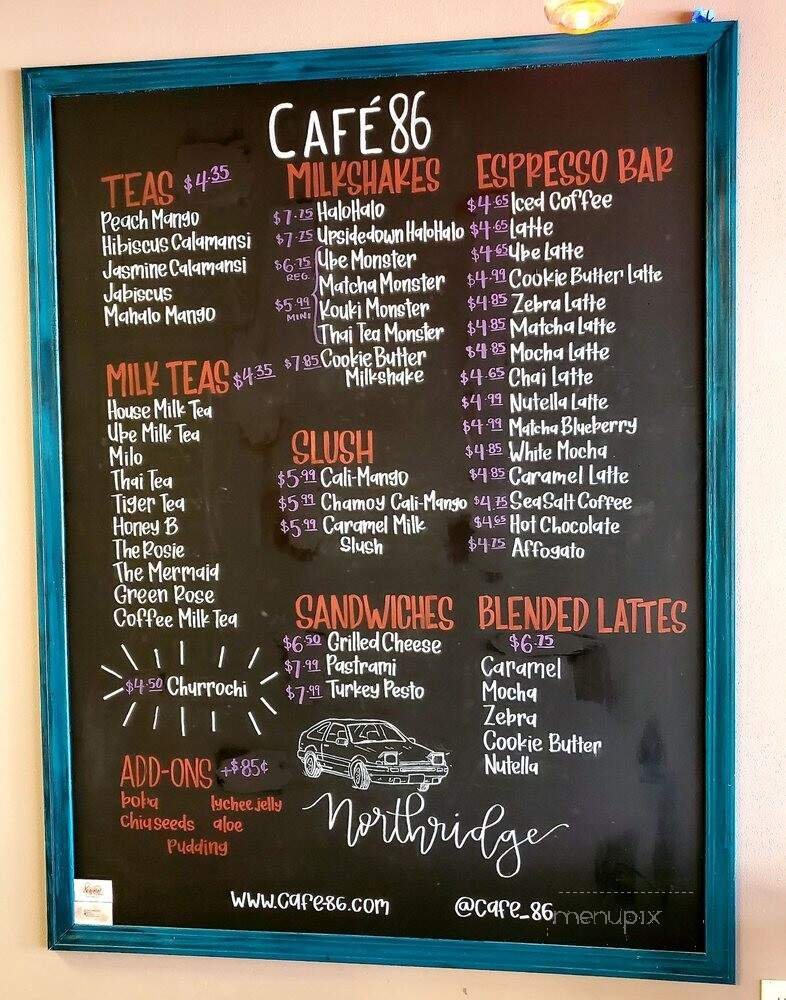 CAFÉ 86
TEAS $4.35
Peach Mango
Hibiscus Calamansi
Jasmine Calamansi
Jabiscus
Mahalo Mango
MILK TEAS $4.35
House Milk Tea
Ube Milk Tea
Milo
Thai Tea
Tiger Tea
Honey B
The Rosie
The Mermaid
Green Rose
Coffee Milk Tea
$4.50 Churrochi
ADD-ONS +$85¢
boba lychee jelly
Chia seeds aloe
Pudding
MILKSHAKES
$7.75 HaloHalo
$7.75 Upsidedown HaloHalo
$6.75 REG. Ube Monster
Matcha Monster
$5.99 MINI Kouki Monster
Thai Tea Monster
$7.85 Cookie Butter
Milkshake
SLUSH
$5.99 Cali-Mango
$5.99 Chamoy Cali-Mango
$5.99 Caramel Milk
Slush
SANDWICHES
$6.50 Grilled Cheese
$7.99 Pastrami
$7.99 Turkey Pesto
Northridge
ESPRESSO BAR
$4.65 Iced Coffee
$4.65 Latte
$4.65 Ube Latte
$4.99 Cookie Butter Latte
$4.85 Zebra Latte
$4.85 Matcha Latte
$4.85 Mocha Latte
$4.65 Chai Latte
$4.99 Nutella Latte
$4.99 Matcha Blueberry
$4.85 White Mocha
$4.85 Caramel Latte
$4.75 Sea Salt Coffee
$4.65 Hot Chocolate
$4.75 Affogato
BLENDED LATTES
$6.75
Caramel
Mocha
Zebra
Cookie Butter
Nutella
www.cafe86.com @cafe_86
menupix